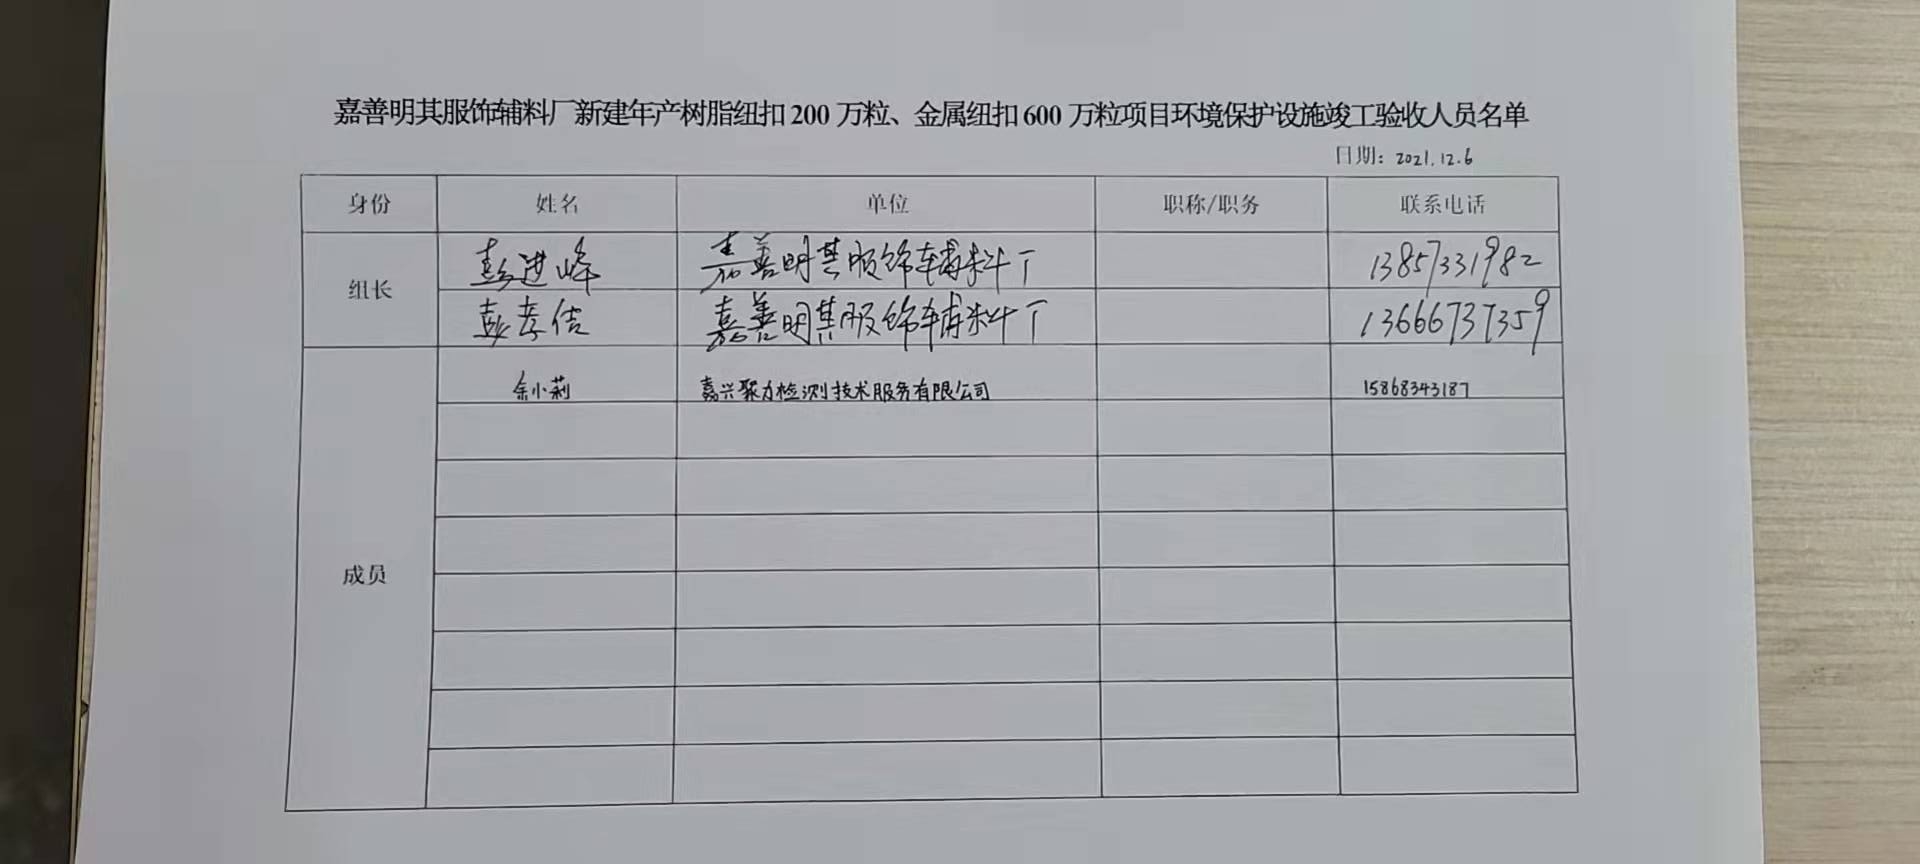 嘉善明其服饰辅料厂新建年产树脂纽扣200万粒、金属纽扣600万粒项目环境保护设施竣工验收人员名单
日期：2021.12.6
身份 姓名 单位 职称/职务 联系电话
组长
彭进峰 嘉善明其服饰辅料厂 13857331982
彭孝佶 嘉善明其服饰辅料厂 13666737359
成员
余小莉 嘉兴聚力检测技术服务有限公司 15868343187